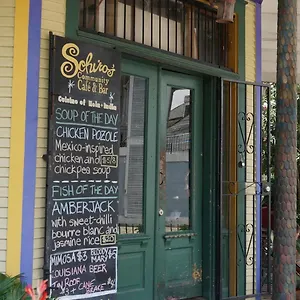 Schiro's
Community
Café & Bar
Cuisine of NoLa-India
SOUP OF
THE DAY
CHICKEN POZOLE
Mexico-inspired
chicken and
chickpea soup
FISH OF THE DAY
AMBERJACK
with sweet-chilli
bourre blanc and
Jasmine rice
MIMOSA $3
BLOODY MARY $5
LOUISIANA BEER